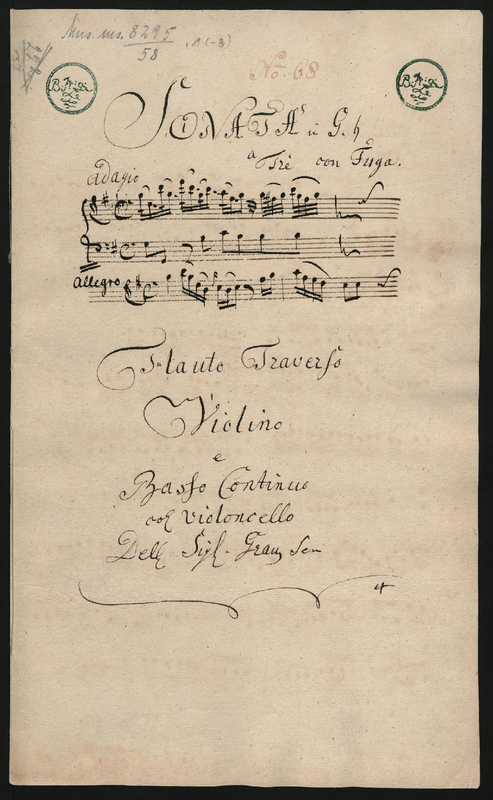 Mus. ms. 8295
58
, 1 (-3)
No: 68
SONATA in G. ♮
a Trè con Fuga.
adagio
allegro
Flauto Traverso
Violino
e
Basso Continuo
col violoncello
Dell Sigl. Graun Sen
4